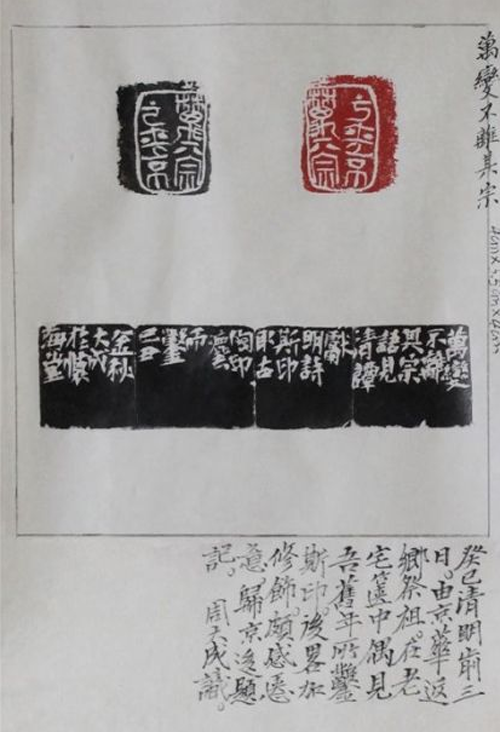 萬變不離其宗
萬變
不離
其宗
語見
清譚
獻
明詩
斯印
師
鑿
己丑
金秋
大成
於懷
海堂
癸巳清明前三
日。由京華返
鄉祭祖。在老
宅篋中偶見
吾舊年所鑿
斯印。後畧加
修飾。頗感愜
意。歸京後題
記。周大成識。